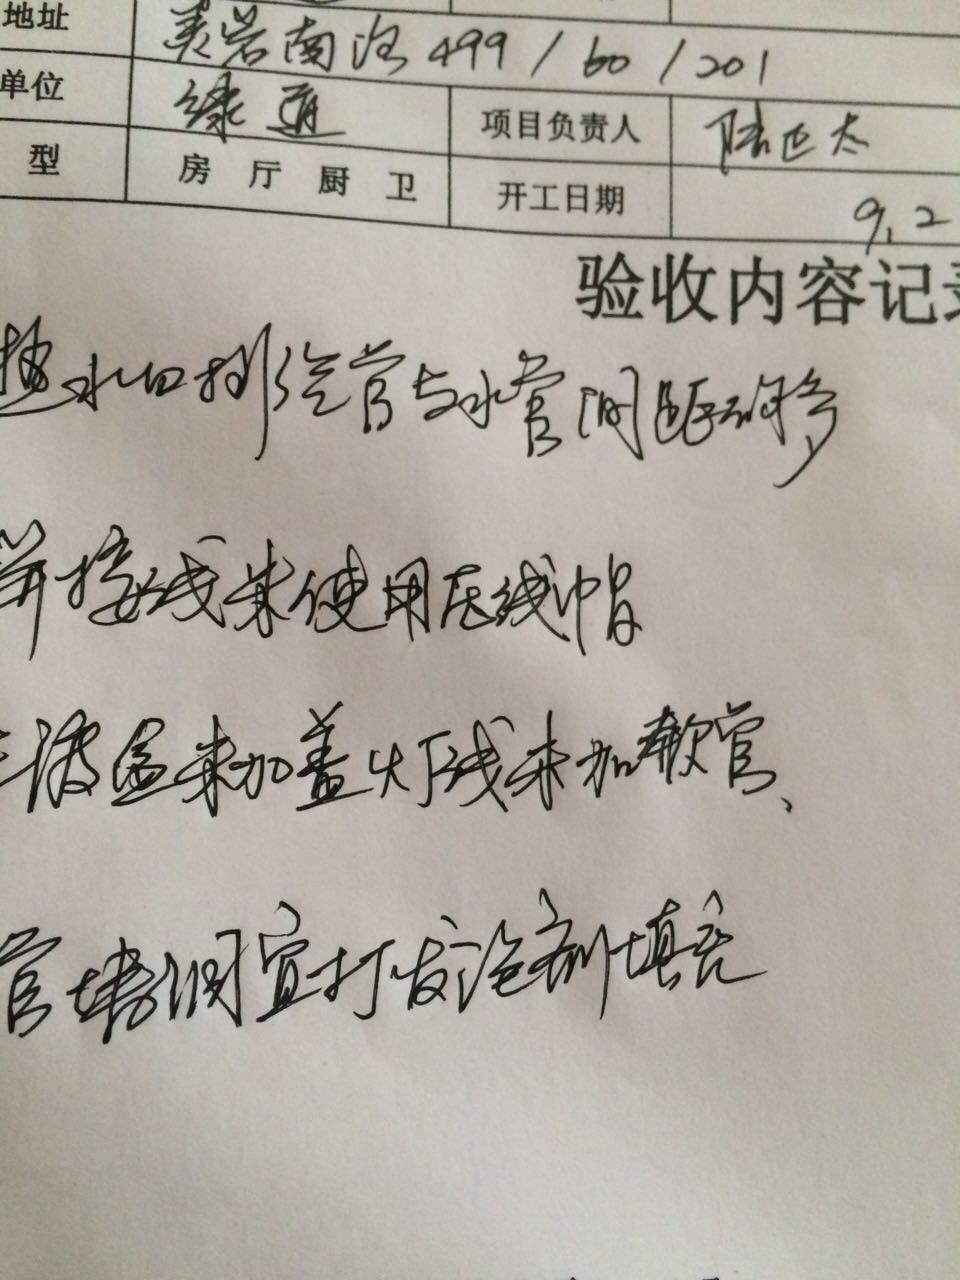 地址 芙蓉南路 499 / 60 / 201
单位 绿通 项目负责人 陆正太
型 房 厅 厨 卫 开工日期 9.2
验收内容记录
水口排污管与水管间距
并接线未使用压线帽
盒未加盖 灯线未加软管、
管 洞宜打发泡剂填充